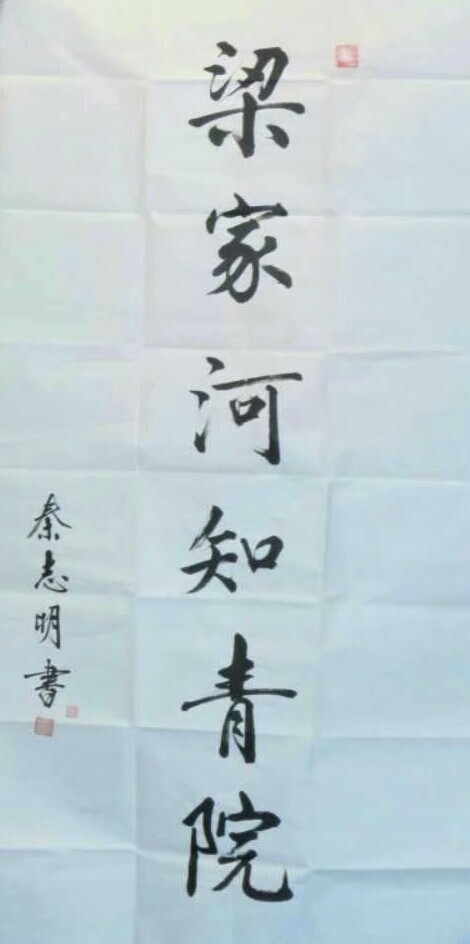 梁家河知青院
秦志明书